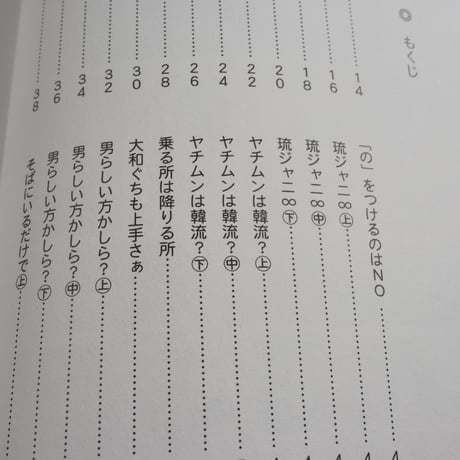 もくじ
14
16
18
20
22
24
26
28
30
32
34
36
38
「の」をつけるのはNO
琉ジャニ∞㊤
琉ジャニ∞㊥
琉ジャニ∞㊦
ヤチムンは韓流?㊤
ヤチムンは韓流?㊥
ヤチムンは韓流?㊦
乗る所は降りる所
大和ぐちも上手さぁ
男らしい方かしら?㊤
男らしい方かしら?㊥
男らしい方かしら?㊦
そばにいるだけで㊤